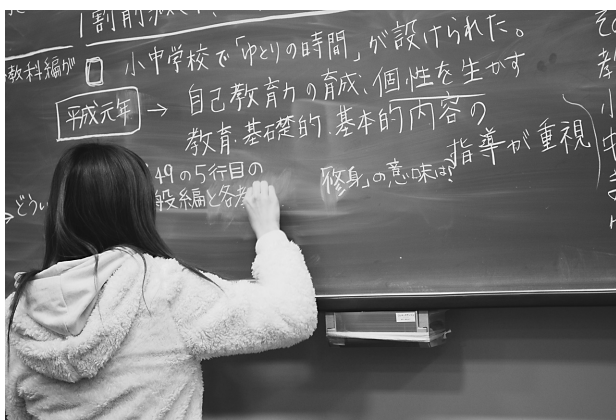 1割削減
教科編が
小中学校で「ゆとりの時間」が設けられた。
平成元年 → 自己教育力の育成、個性を生かす
教育、基礎的、基本的内容の
指導が重視
49の5行目の
般編と各
「修身」の意味は?
どうい